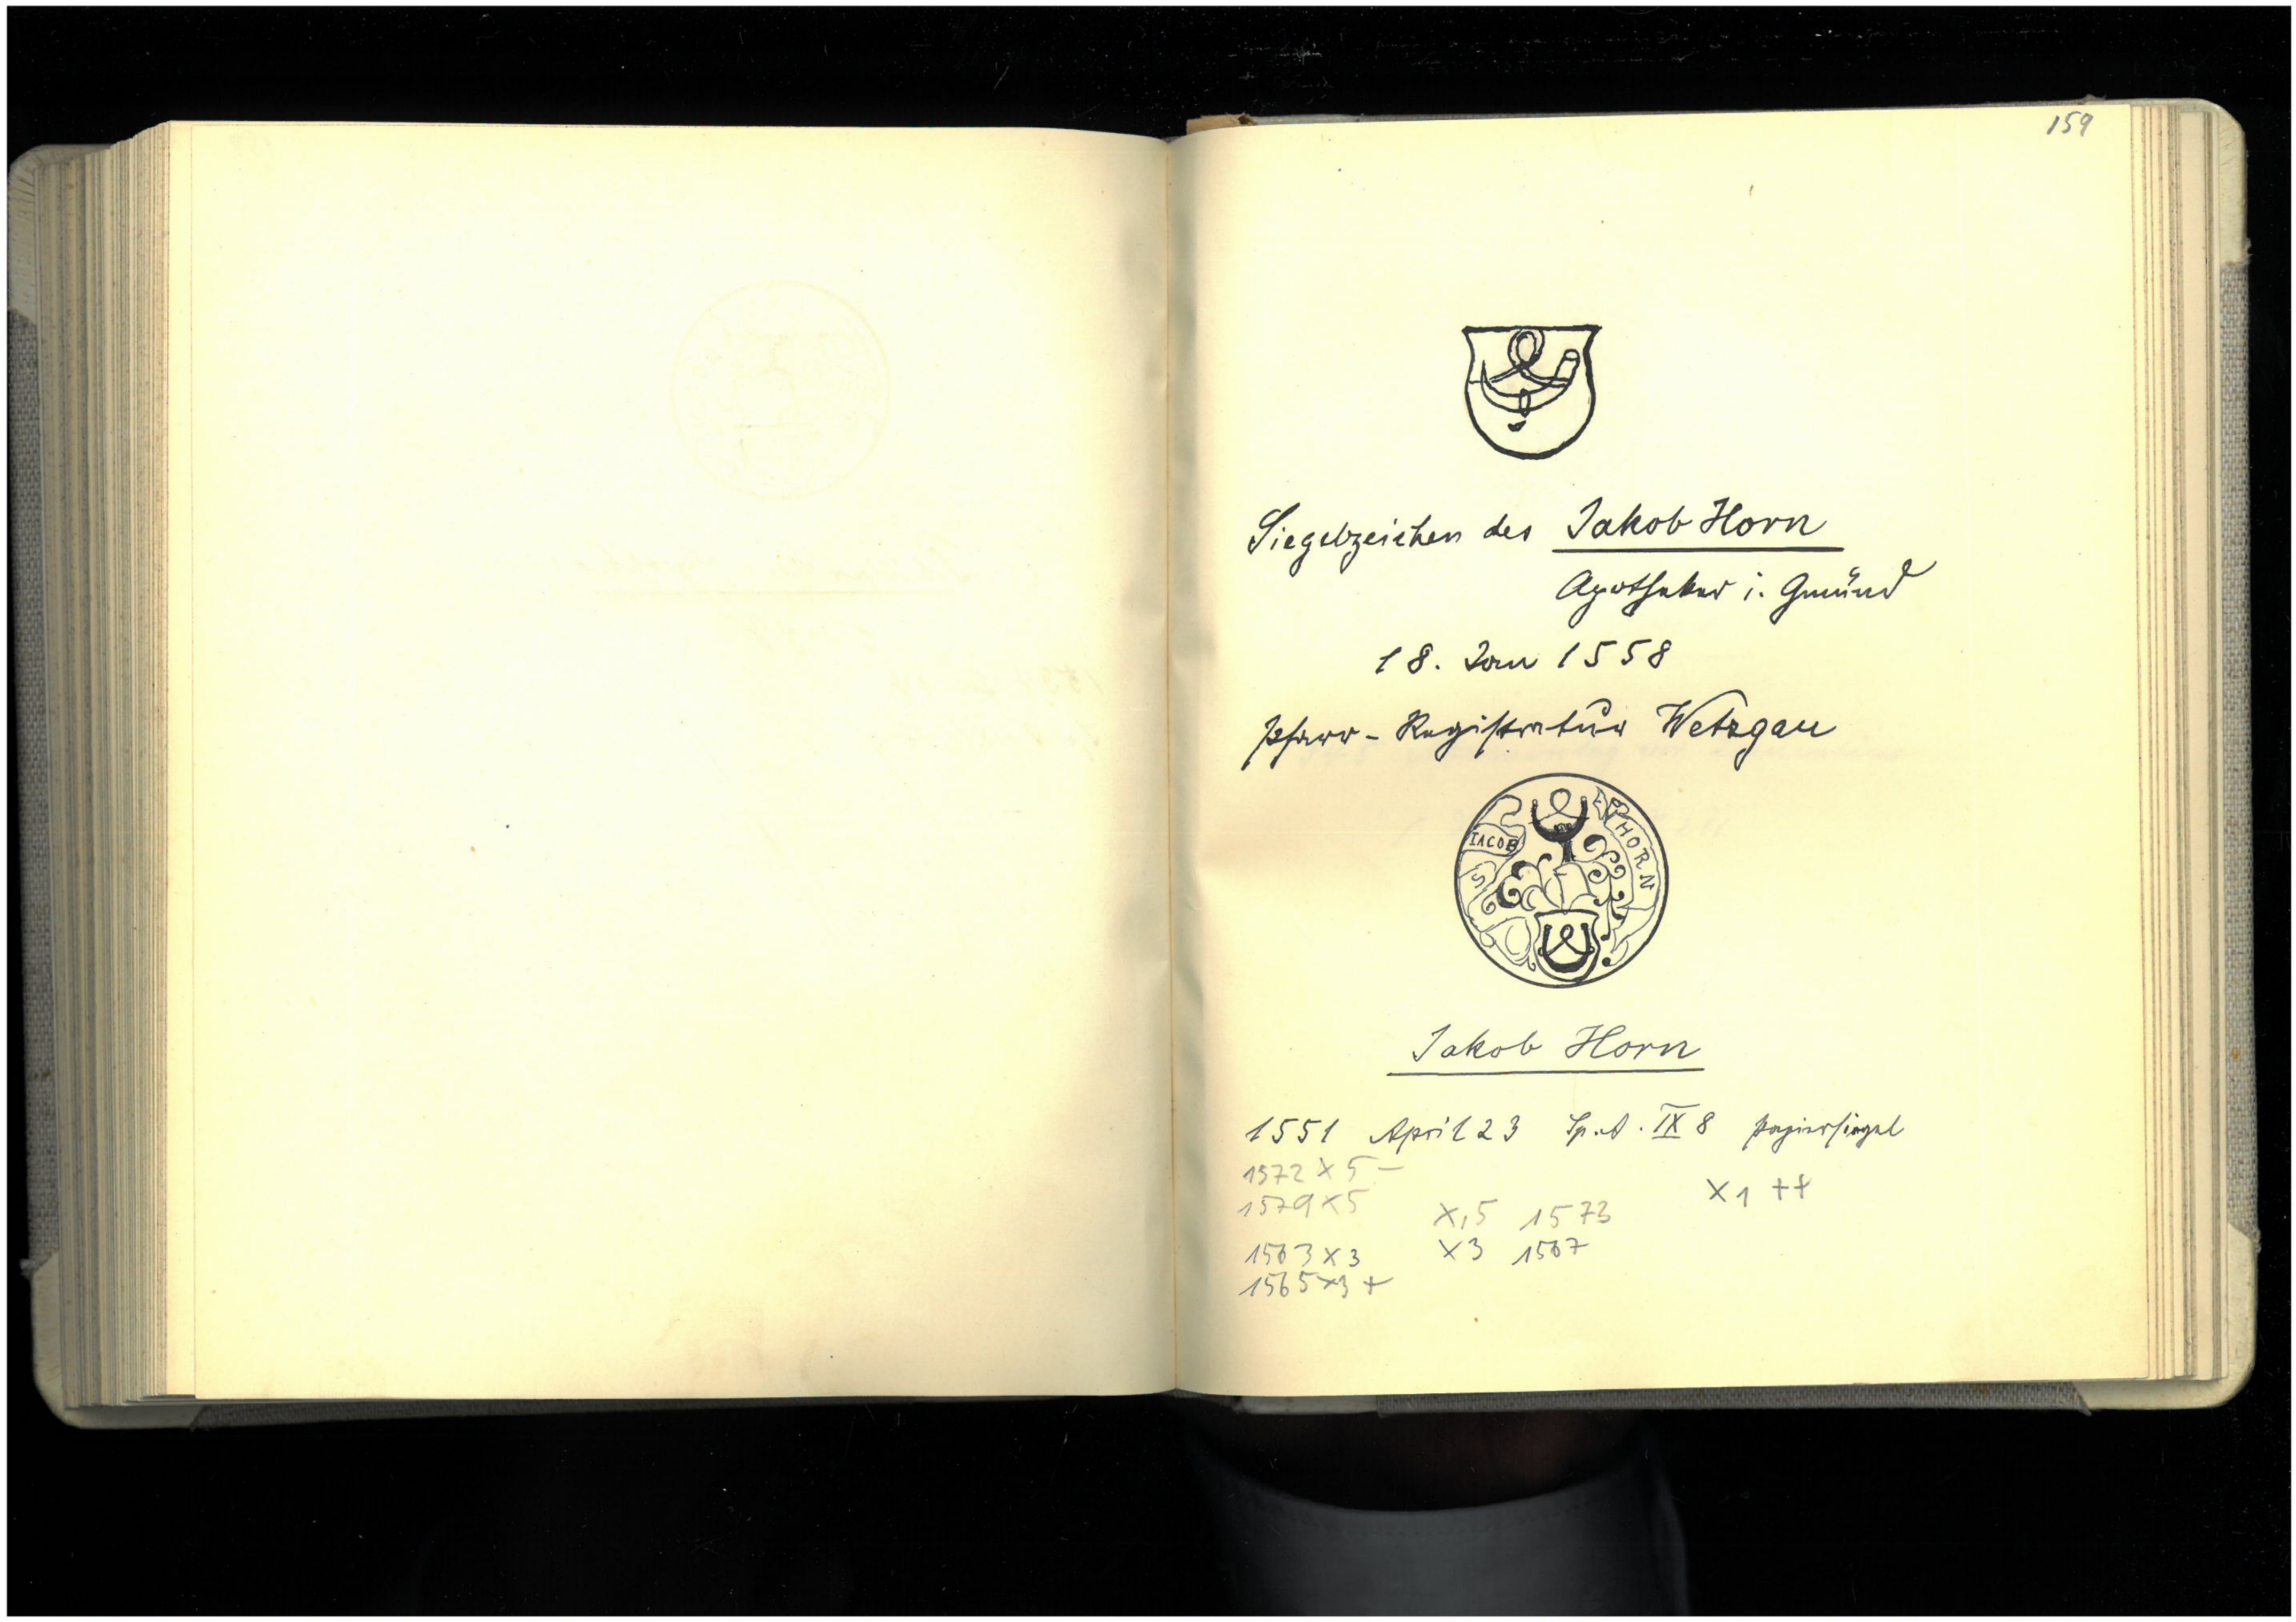 159
Siegelzeichen des Jakob Horn
Apotheker i. Gmünd
18. Jan 1558
Pfarr-Registratur Wetzgau
S IACOB HORN
Jakob Horn
1551 April 23 Sp. A. IX 8 Papiersiegel
1572 X 5 -
X 1 ++
1579 X 5
X, 5 1573
1563 X 3
X 3 1567
1565 X 3 +